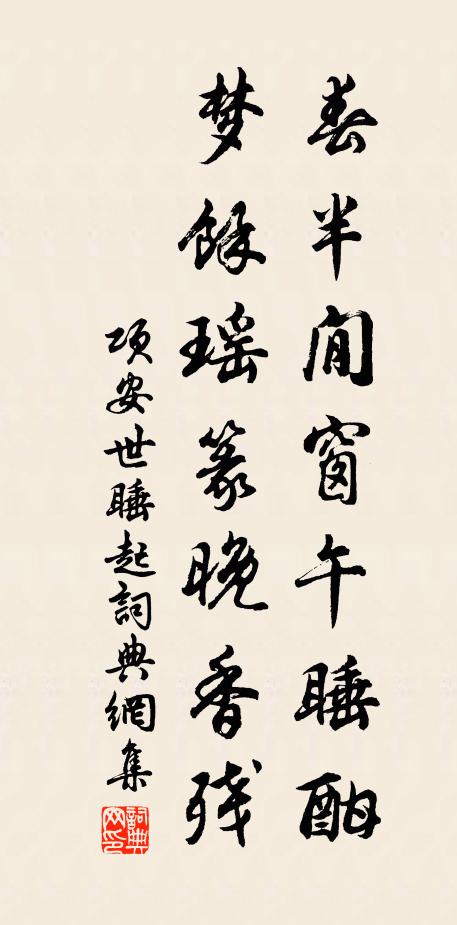 春半閒窗午睡酣
梦餘瑶篆晚香残
项安世睡起詞典網集
詞典网印